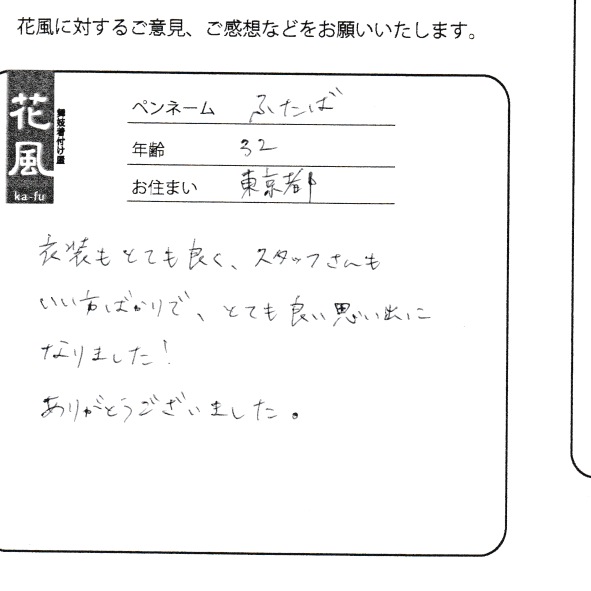 花風に対するご意見、ご感想などをお願いいたします。
花風
舞妓着付け屋
ka-fu
ペンネーム ふたば
年齢 32
お住まい 東京都
衣装もとても良く、スタッフさんも
いい方ばかりで、とても良い思い出に
なりました!
ありがとうございました。